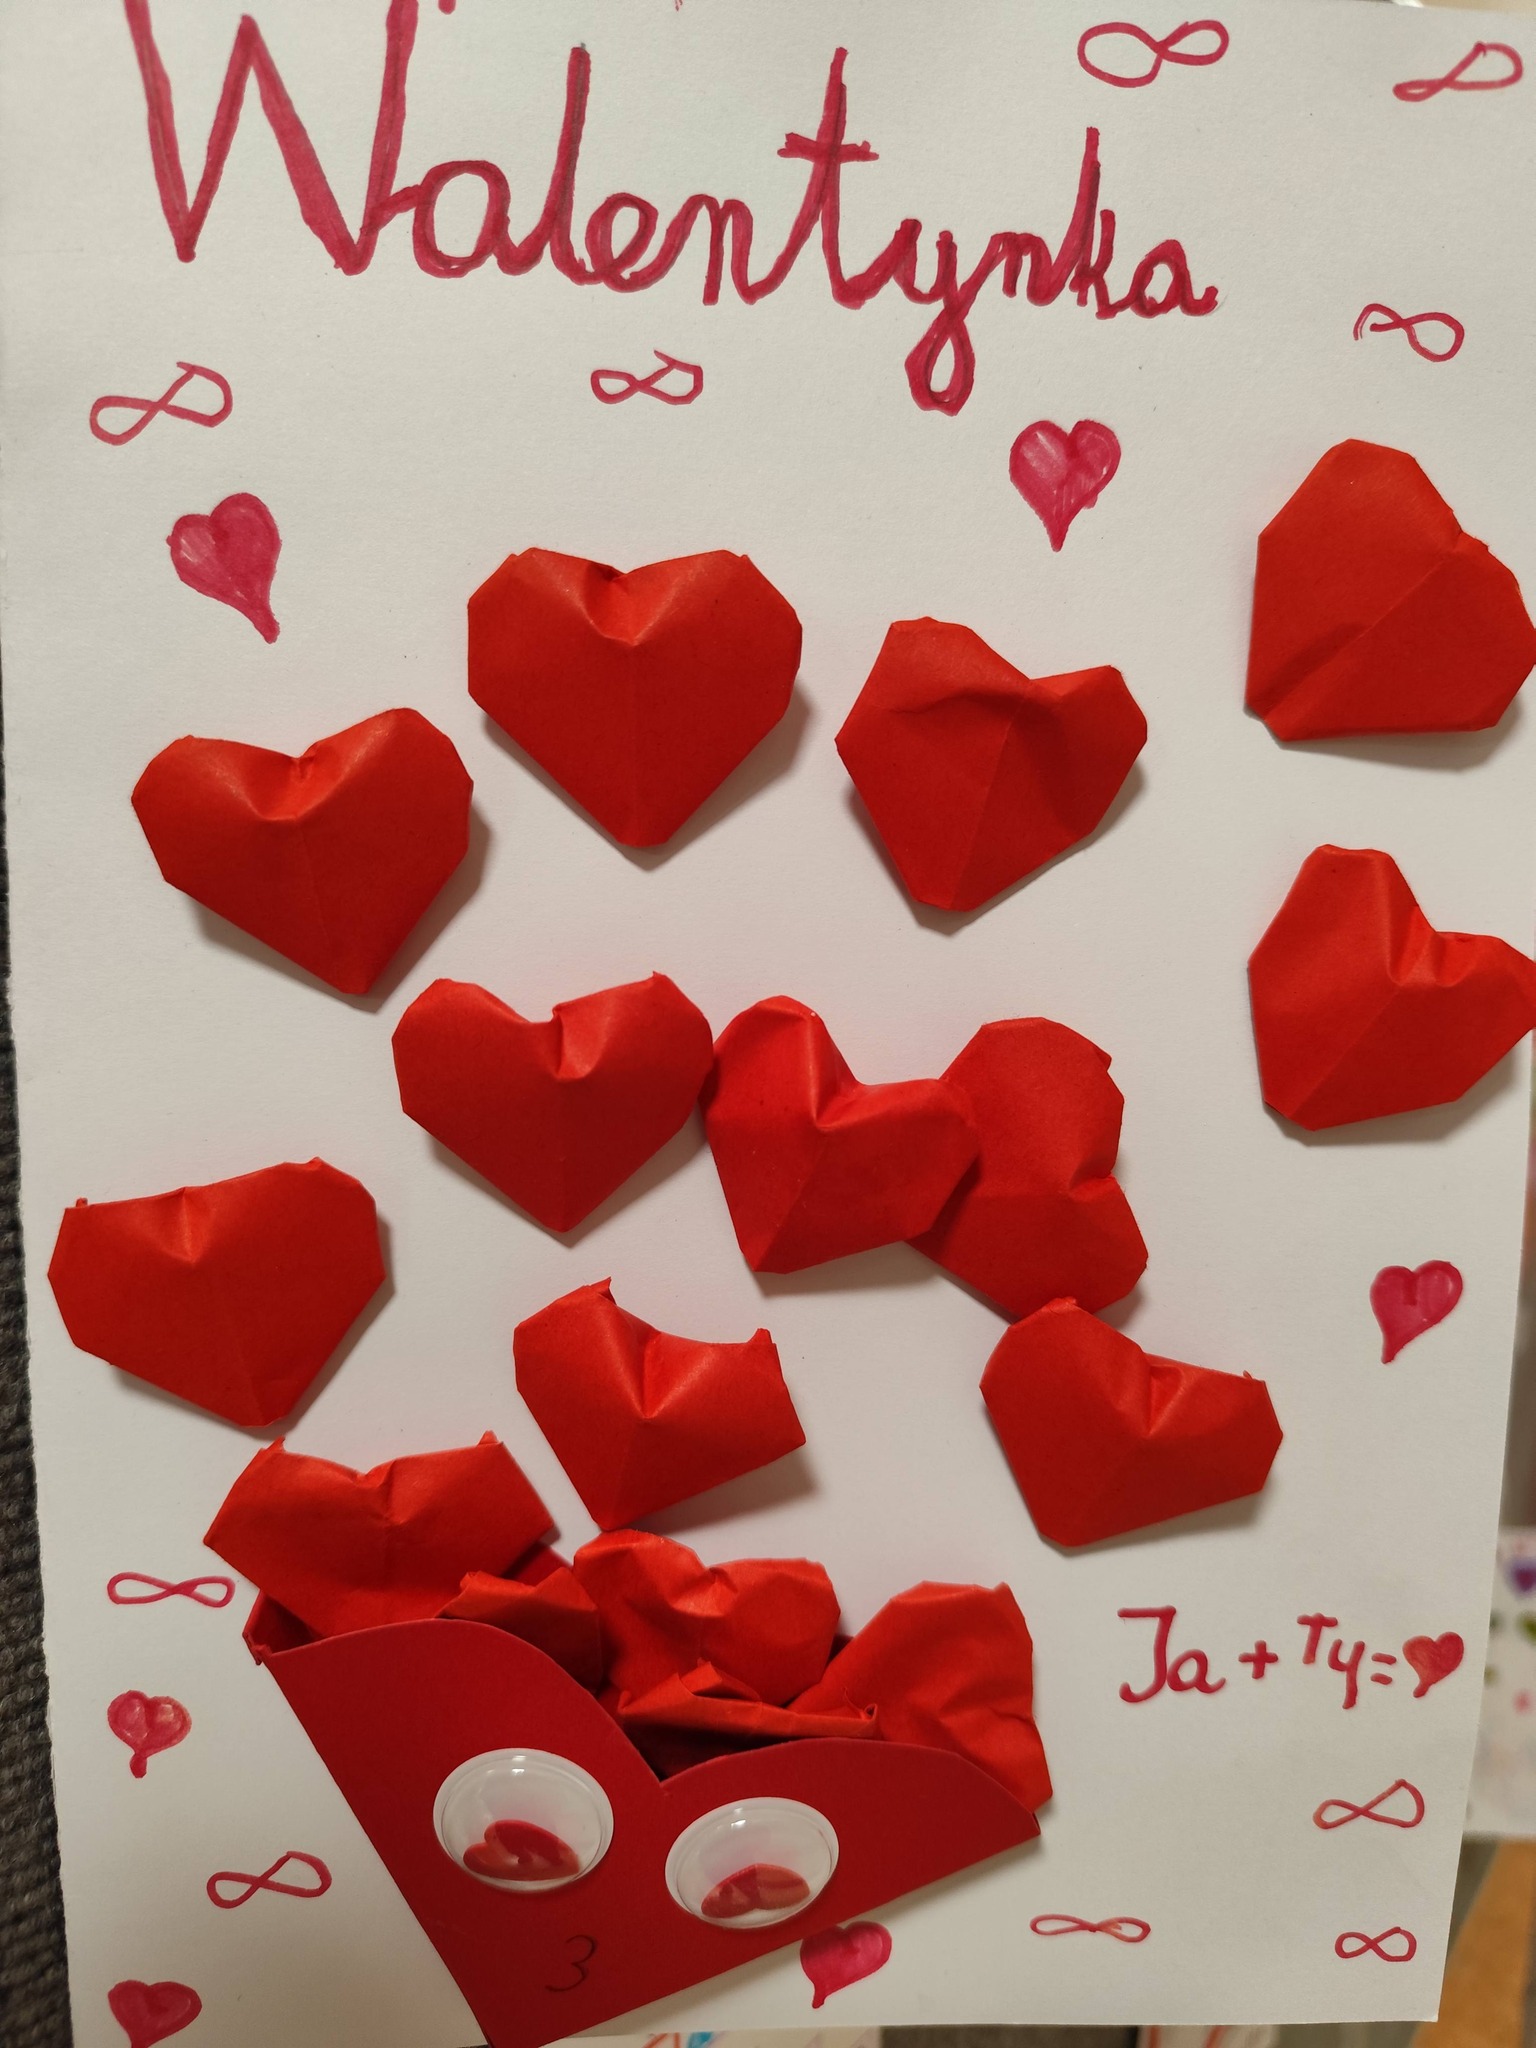 Walentynka
Ja + Ty = ❤
3